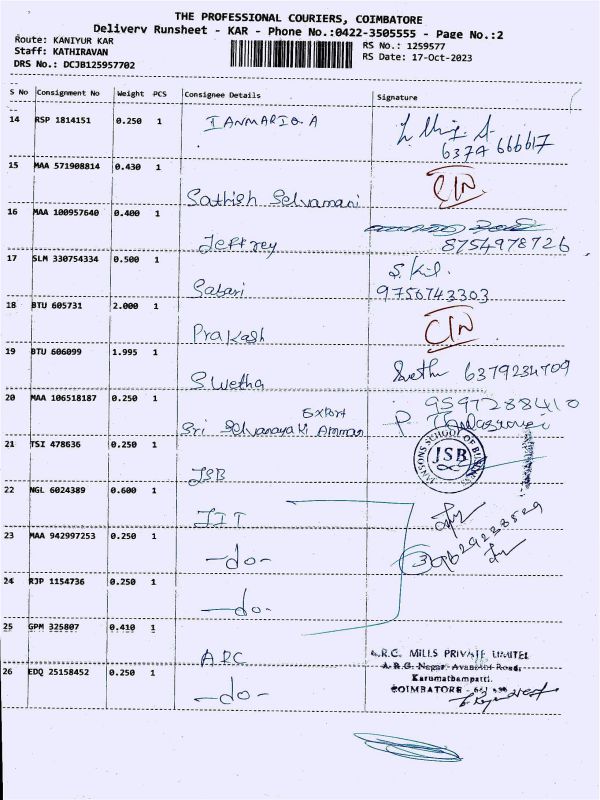 THE PROFESSIONAL COURIERS, COIMBATORE
Delivery Runsheet - KAR - Phone No.:0422-3505555 - Page No.:2
Route: KANIYUR KAR
RS No.: 1259577
Staff: KATHIRAVAN
RS Date: 17-Oct-2023
DRS No.: DCJB125957702
S No Consignment No Weight PCS Consignee Details Signature
14 RSP 1814151 0.250 1 IANMARIO.A
6374 666617
15 MAA 571908814 0.430 1 Sathish Selvamani
16 MAA 100957640 0.400 1 Jeffrey 8754978726
17 SLM 330754334 0.500 1 Sabari
9756743303
18 BTU 605731 2.000 1 Prakash
19 BTU 606099 1.995 1 Swetha 6379234709
20 MAA 106518187 0.250 1 Sri Selvanayaki Amman Export 9597288410
21 TSI 478636 0.250 1 JSB
JANSONS SCHOOL OF BUSINESS
JSB
22 NGL 6024389 0.600 1 JIT
23 MAA 942997253 0.250 1 -do-
24 RJP 1154736 0.250 1 -do-
25 GPM 325807 0.410 1 ARC
A.R.C. MILLS PRIVATE LIMITED
Karumathampatti.
COIMBATORE
26 EDQ 25158452 0.250 1 -do-